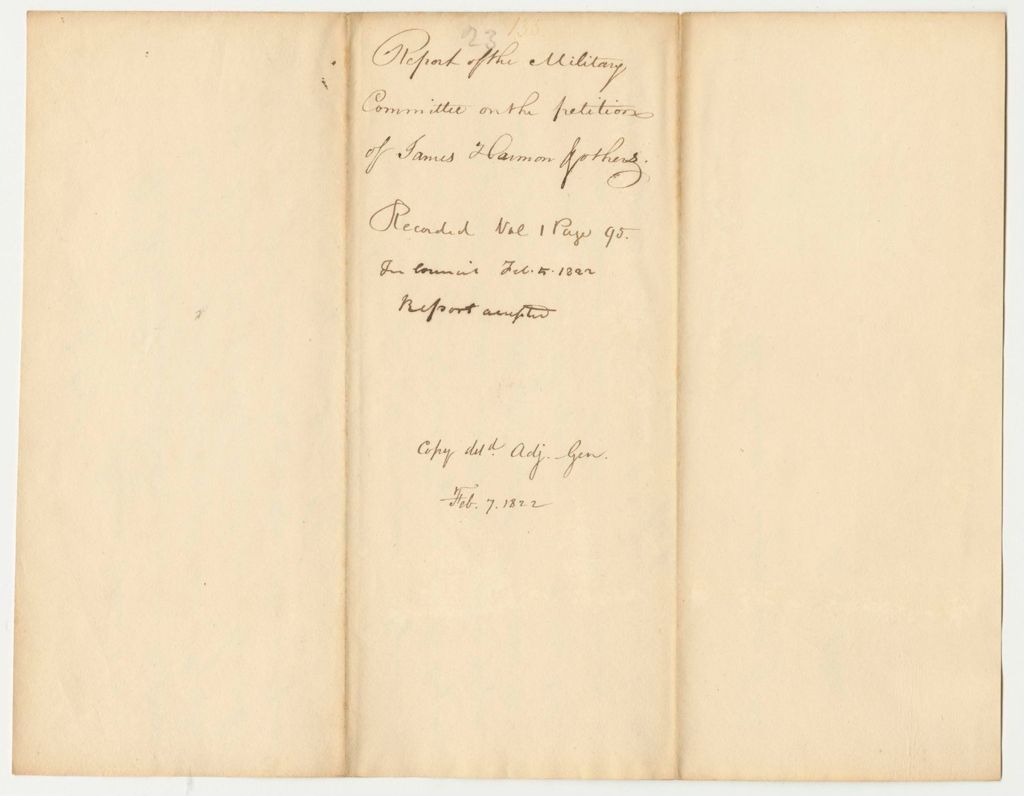 23 135
Report of the Military
Committee on the petition
of James Harmon & others.
Recorded Vol 1 Page 95.
In Council Feb. 5. 1822
Report accepted
Copy deld. Adj. Gen.
Feb. 7. 1822